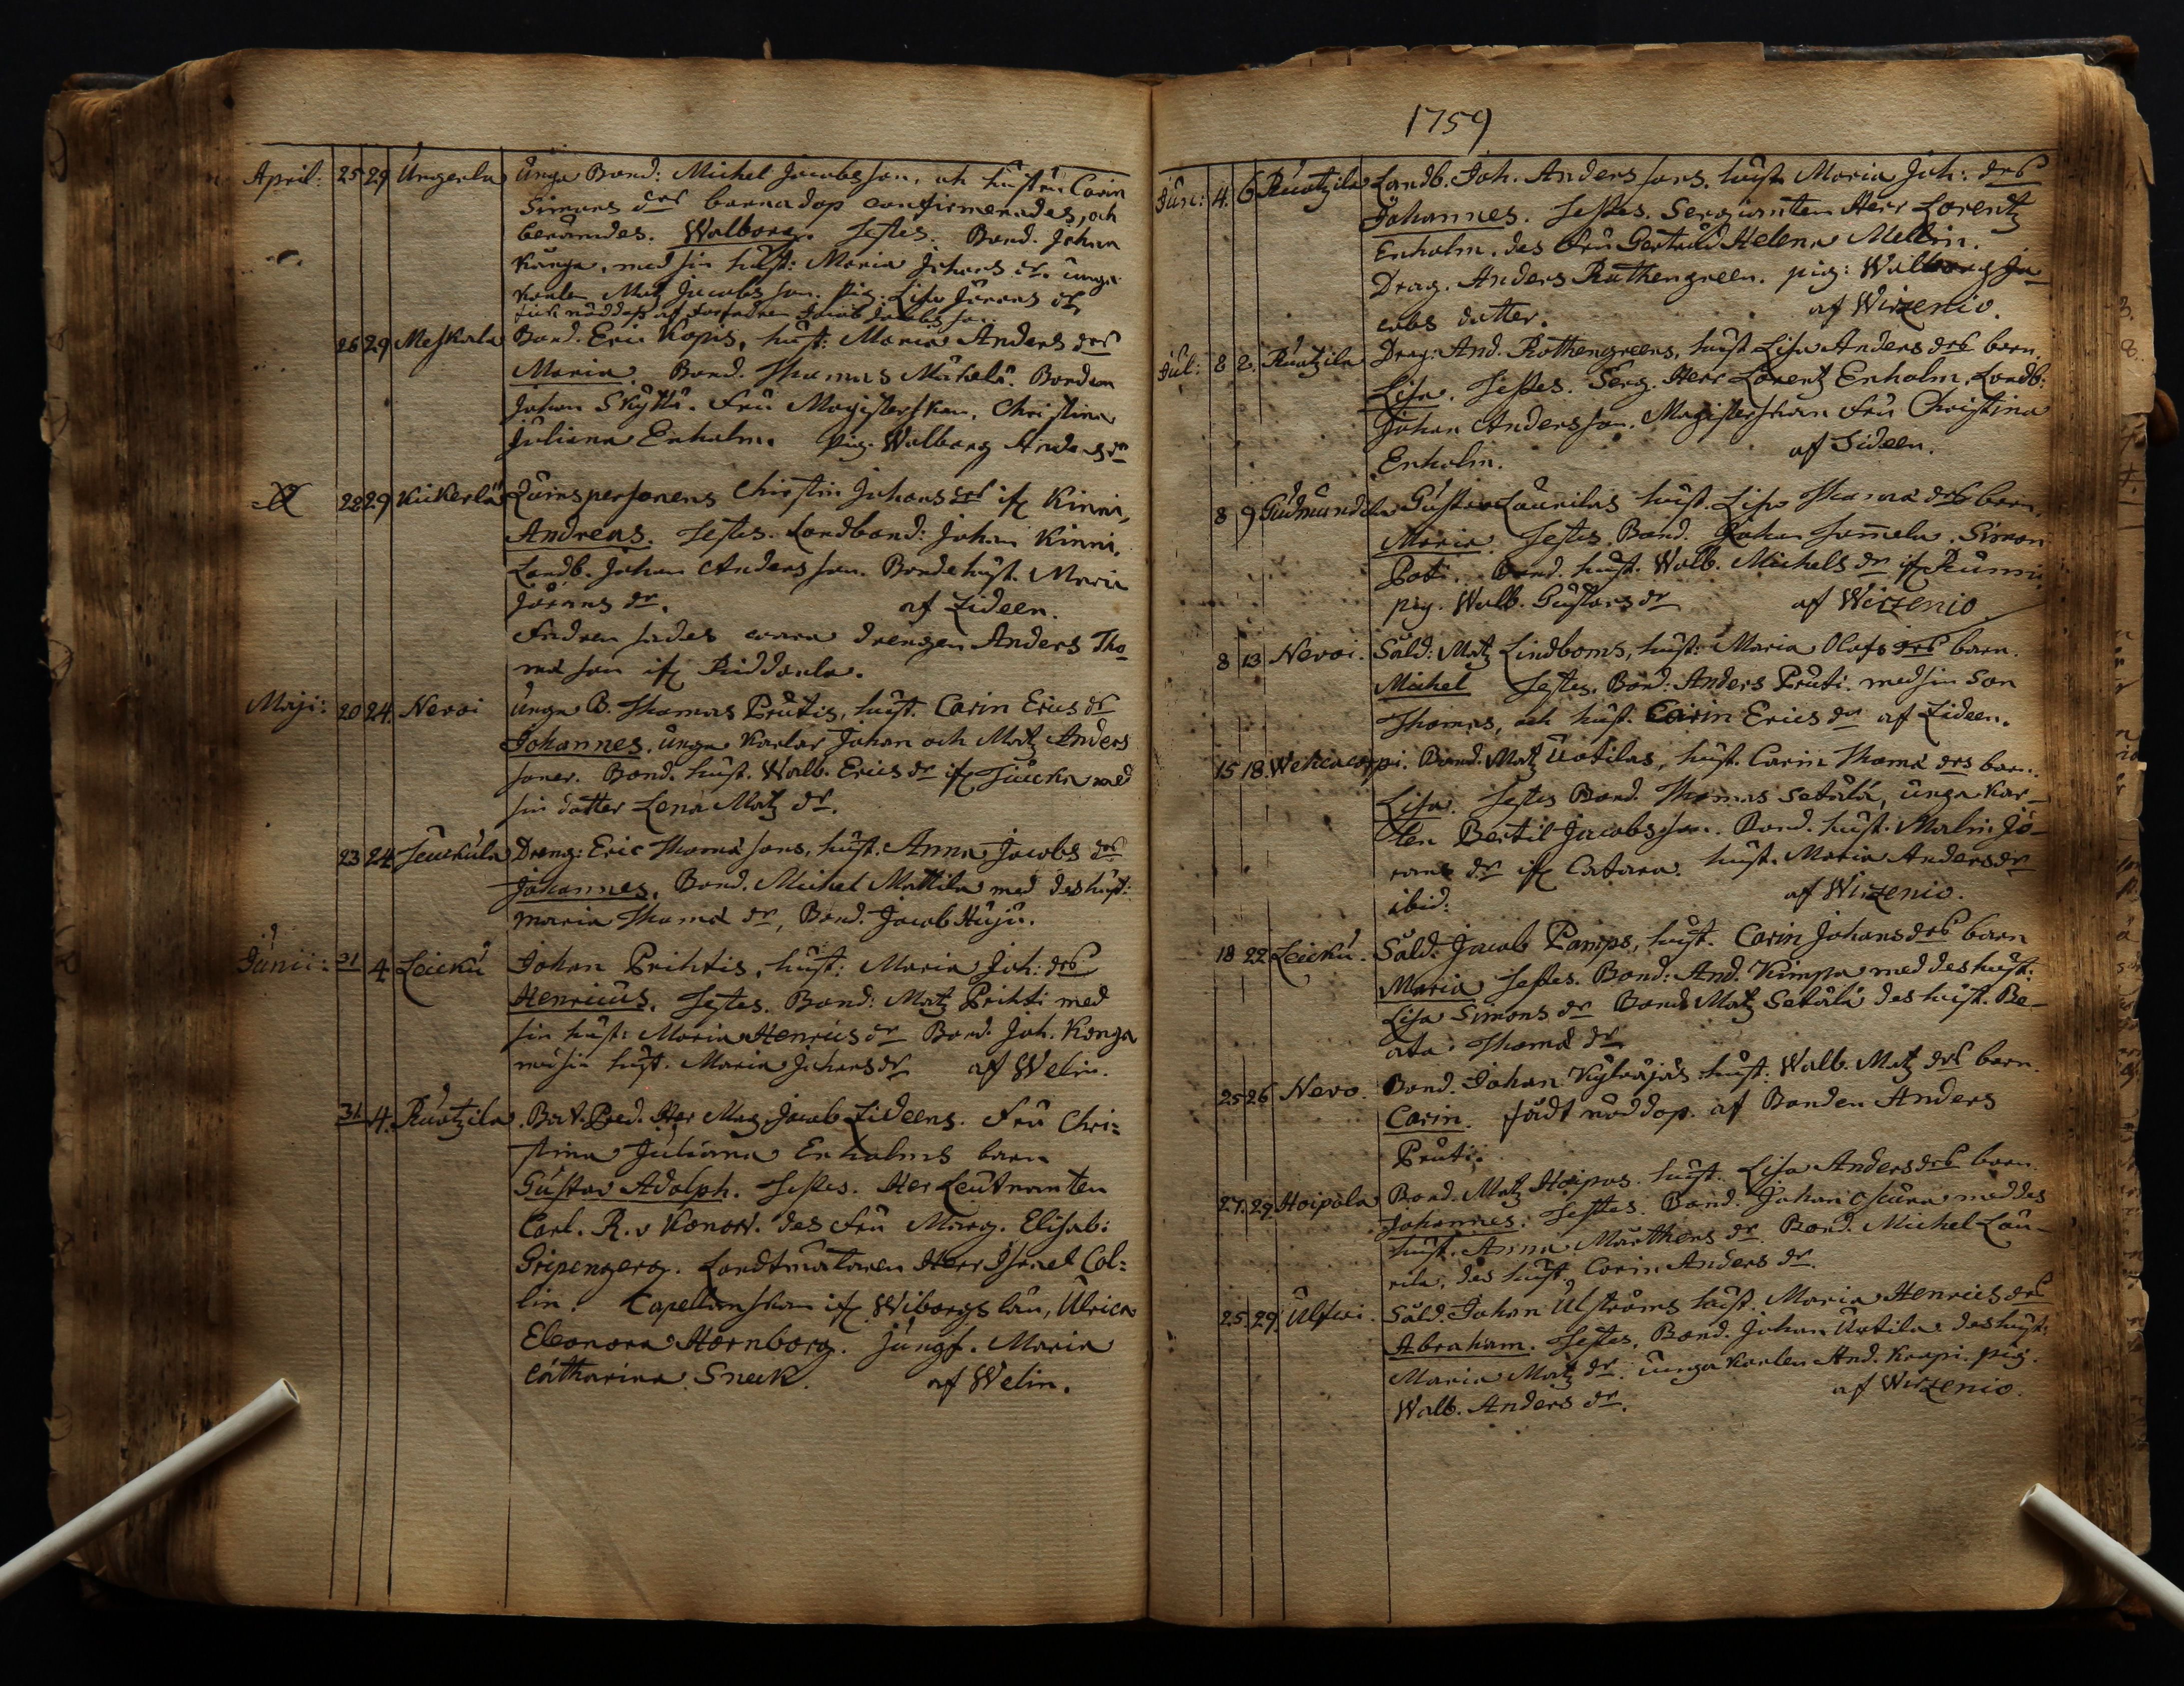 April: 25 29 Ungerla Unga Bond: Michel Jacobsson, och hustru Carin
Simons drs barnadop confirmerades, och
berömdes. Walborg. Testes. Bond. Johan
Kånga, med sin hust: Maria Johans dr. unga
Karlen Matz Jacobsson. Pig: Lisa Jörans dr
nöddopt af Jacob Jacobsson.
26 29 Meskala Bond. Eric Kopis, hust: Maria Anders drs
Maria. Bond. Thomas Mickelä. Bonden
Johan Skyttä. Fru Magisterskan, Christina
Juliana Enholm. pig. Walborg Anders dr
22 29 Kückerlä Qvinspersonens Chirstin Johans drs ifr. Kinni,
Andreas. Testes. Landbond: Johan Kinni,
Landb. Johan Andersson. Bonde hust. Maria
Jörans dr. af Zideen.
Fadren sades wara drengen Anders Tho-
mæ son ifr. Riddarla.
Maji: 20 24. Nevoi Unga B. Thomas Prutis, hust. Carin Erics dr
Johannes. unga Karlar Johan och Matz Anders
soner. Bond. hust. Walb. Erics dr ifr. med
sin dotter Lena Matz dr.
23 24 Dreng: Eric Thomæ sons, hust. Anna Jacobs drs
Johannes. Bond. Michel Mattila med des hust:
Maria Thomæ dr, Bond. Jacob Huju.
Junii: 31 4 Leicku Johan Prihtis, hust: Maria Joh: drs
Henricus. Testes. Bond: Matz Prihti med
sin hust: Maria Henrics dr Bond. Joh. Konga
med sin hust. Maria Johans dr af Welin.
31 4. Ruotzila. Bat. Pred. Her Mag. Jacob Zideens. Fru Chri=
stina Juliana Enholms barn
Gustav Adolph. Testes. Her Leutnanten
Carl. R. v Konow. des Fru Marg. Elisab:
Gripenberg. Landtmätaren Herr Israel Col=
lin. Capellanskan ifr. Wiborgs län, Ulrica
Eleonora Hornborg. Jungf. Maria
Catharina Sneck. af Welin.
1759
Jun: 4. 6 Ruotzila Landb. Joh. Anderssons. hust Maria Joh: drs
Johannes. Testes. Sergianten Herr Lorentz
Enholm. des Fru Gertrud Helena Mellin.
Drag. Anders Rothengreen. pig: Walborg Ja-
cobs dotter. af Wirzenio.
Jul: 8 2. Ruotzila Drag: And. Rothengreens, hust Lisa Anders drs barn.
Lisa. Testes. Serg. Herr Lorentz Enholm, Landb:
Johan Andersson. Magisterskan Fru Christina
Enholm. af Sideen.
8 9 Gudmundila Gustav Laurilas hust. Lisa Thomæ drs barn.
Maria. Testes. Bond. Johan Jomela. Simon
Poti. Bond. hust. Walb. Michels dr ifr.
pig. Walb. Gustavs dr af Wirzenio
8 13 Nevoi. Sold: Matz Lindboms, hust: Maria Olofs drs barn.
Michel Testes. Bond: Anders Pruti. med sin Son
Thomas, och hust. Carin Erics dr af Zideen.
15 18. Wehcacorpi. Bond. Matz Uotilas, hust. Carin Thomæ drs barn.
Lisa. Testes Bond. Thomas Setälä, unga Kar-
len Bertil Jacobsson. Bond. hust. Malin Jö-
rans dr ifr. Catara. hust. Maria Anders dr
ibid: af Wirzenio.
18 22 Leicku. Sold: Jacob Pamps, hust. Carin Johans drs barn
Maria Testes. Bond: And. Kimpa med des hust:
Lisa Simons dr Bond. Matz Setälä des hust. Be-
ata Thomæ dr
25 26 Nevo. Bond. Johan Kylväjäs hust. Walb. Matz drs barn.
Carin. fådt nöddop. af Bonden Anders
Pruti.
27. 29. Hoipola Bond. Matz Hoipos. hust. Lisa Anders drs barn.
Johannes. Testes. Bond: Johan Oscura med des
hust. Anna Mårthens dr. Bond. Michel Lau-
rila, des hust. Carin Anders dr.
25. 29. Ulfwi. Sold. Johan Ulströms hust. Maria Henrics drs
Abraham. Testes. Bond. Johan Uotila des hust:
Maria Matz dr. unga Karlen And. Krapi. pig.
Walb. Anders dr. af Wirzenio.